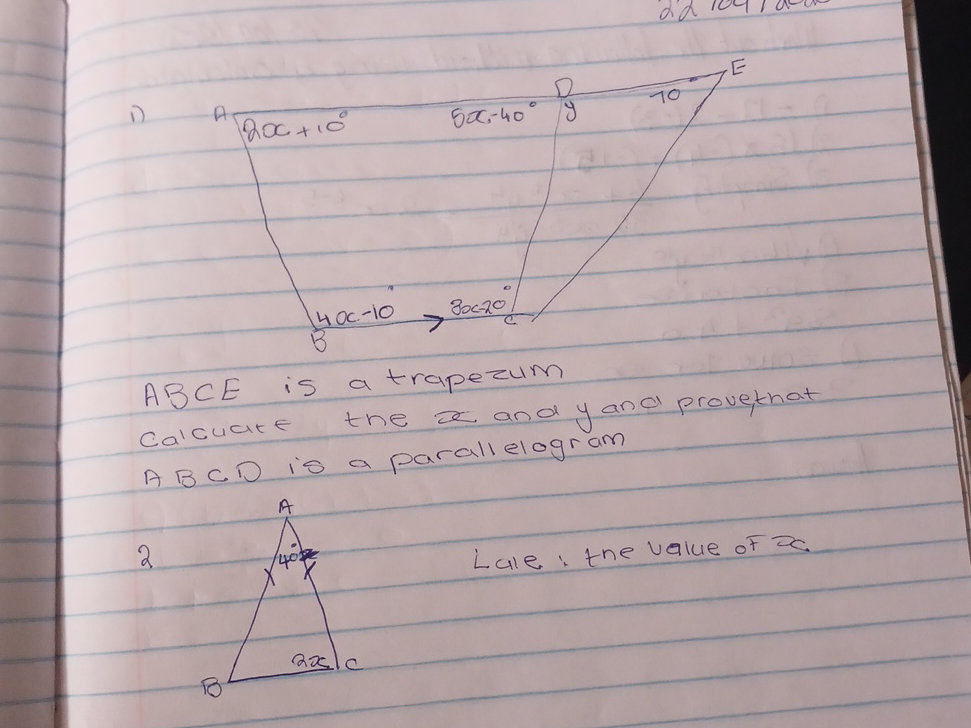 1)
A D E
2x+10° 5x-40° y 70°
4x-10° 3x-20°
B C
ABCE is a trapezum
calcuate the x and y and prove that
ABCD is a parallelogram
A
2 40° Lale : the value of x
2x
B C